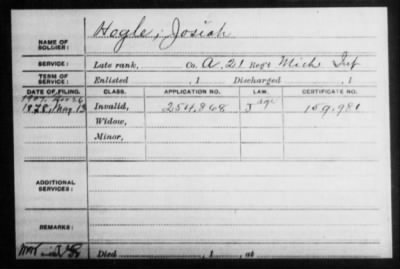 NAME OF SOLDIER: Hogle, Josiah
SERVICE: Late rank, Co. A, 21 Reg't Mich Inf
TERM OF SERVICE: Enlisted , 1 Discharged , 1
DATE OF FILING. CLASS. APPLICATION NO. LAW. CERTIFICATE NO.
age
1878, May 13 Invalid, 254.868 159.981
Widow,
Minor,
ADDITIONAL SERVICES:
REMARKS:
Died , 1 , at